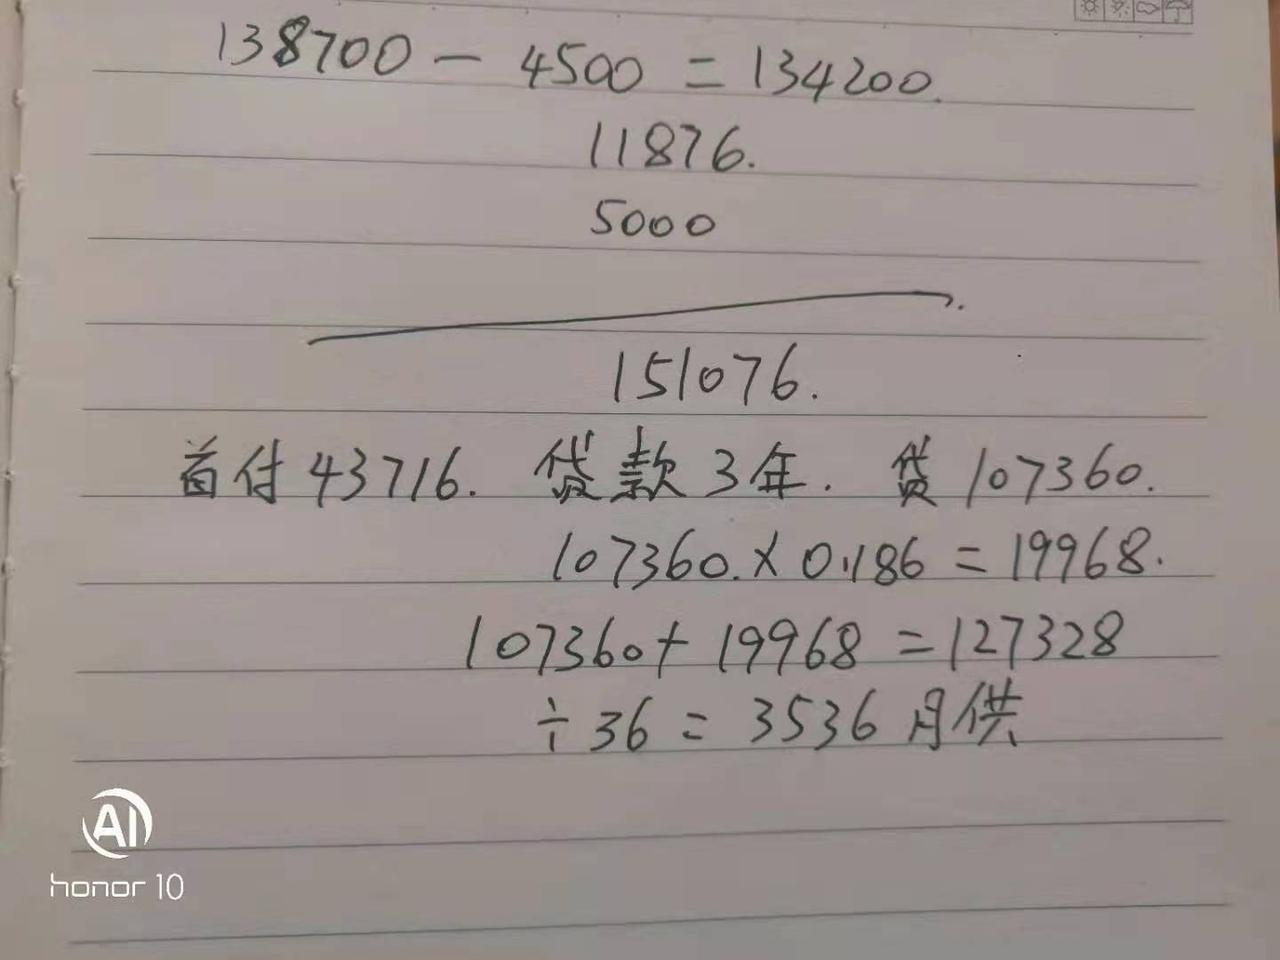 138700 - 4500 = 134200.
11876.
5000
151076.
首付43716. 贷款3年. 贷107360.
107360.×0.186=19968.
107360+19968=127328
÷36=3536月供
AI
honor 10